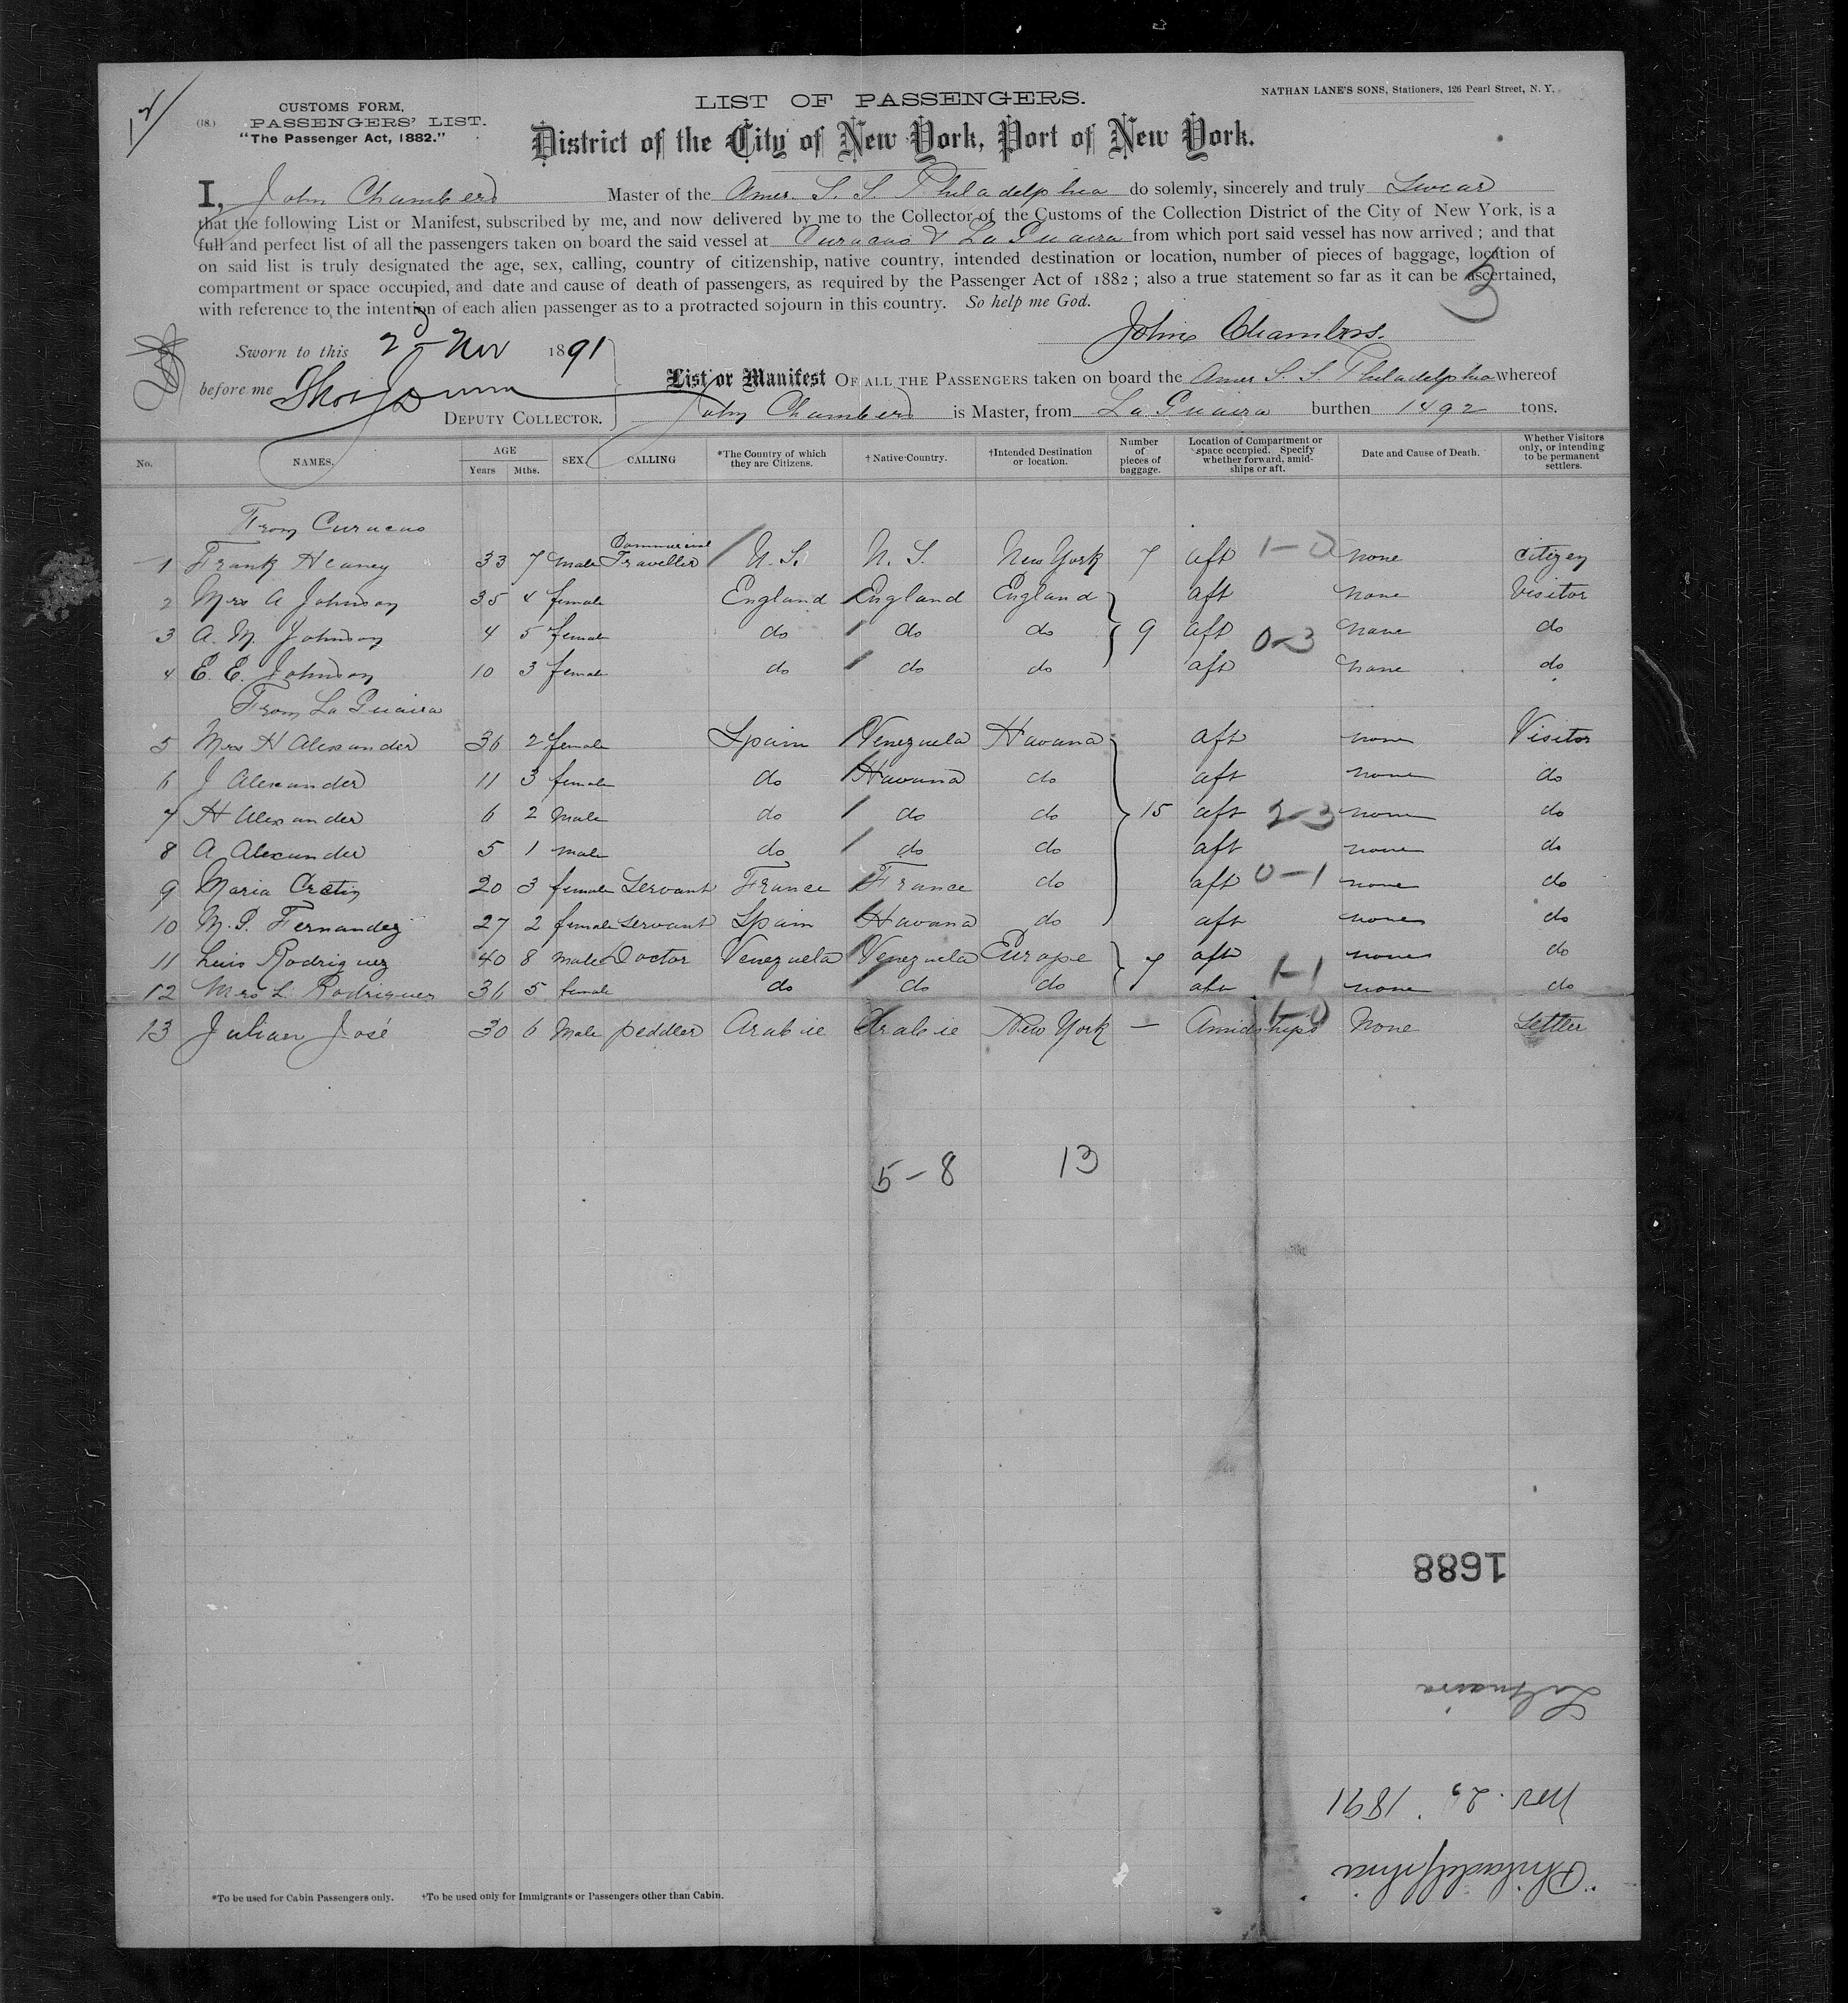 CUSTOMS FORM,
(18.) PASSENGERS' LIST.
"The Passenger Act, 1882."
LIST OF PASSENGERS.
NATHAN LANE'S SONS, Stationers, 126 Pearl Street, N. Y.
District of the City of New York, Port of New York.
I, John Chambers Master of the Amer. S. S. Philadelphia do solemly, sincerely and truly Swear
that the following List or Manifest, subscribed by me, and now delivered by me to the Collector of the Customs of the Collection District of the City of New York, is a
full and perfect list of all the passengers taken on board the said vessel at Curacao & La Guaira from which port said vessel has now arrived ; and that
on said list is truly designated the age, sex, calling, country of citizenship, native country, intended destination or location, number of pieces of baggage, location of
compartment or space occupied, and date and cause of death of passengers, as required by the Passenger Act of 1882 ; also a true statement so far as it can be ascertained,
with reference to the intention of each alien passenger as to a protracted sojourn in this country. So help me God.
3
John Chambers.
Sworn to this 2d Nov 1891
before me Thos
DEPUTY COLLECTOR.
List or Manifest OF ALL THE PASSENGERS taken on board the Amer S. S. Philadelphia whereof
John Chambers is Master, from La Guaira burthen 1492 tons.
No. NAMES. AGE Years Mths. SEX. CALLING *The Country of which they are Citizens. † Native Country. †Intended Destination or location. Number of pieces of baggage. Location of Compartment or space occupied. Specify whether forward, amidships or aft. Date and Cause of Death. Whether Visitors only, or intending to be permanent settlers.
From Curacao
1 Frank Heaney 33 7 male Commercial Traveller U. S. U. S. New York 7 aft 1-0 none Citizen
2 Mrs A Johnson 35 4 female England England England aft none Visitor
3 A. M. Johnson 4 5 female do do do 9 aft 0-3 none do
4 E. E. Johnson 10 3 female do do do aft none do
From La Guaira
5 Mrs H Alexander 36 2 female Spain Venezuela Havana aft none Visitor
6 J Alexander 11 3 female do Havana do aft none do
7 H Alexander 6 2 male do do do 15 aft 2-3 none do
8 A Alexander 5 1 male do do do aft none do
9 Maria 20 3 female Servant France France do aft 0-1 none do
10 M. P. Fernandez 27 2 female Servant Spain Havana do aft none do
11 Luis Rodriguez 40 8 male Doctor Venezuela Venezuela Europe 7 aft none do
12 Mrs L. Rodriguez 36 5 female do do do aft 1-1 none do
13 Julian José 30 6 Male peddler Arabie Arabie New York — Amidships 1-0 None Settler
5-8 13
1688
La Guaira
Nov. 2, 1891
"Philadelphia"
*To be used for Cabin Passengers only. †To be used only for Immigrants or Passengers other than Cabin.